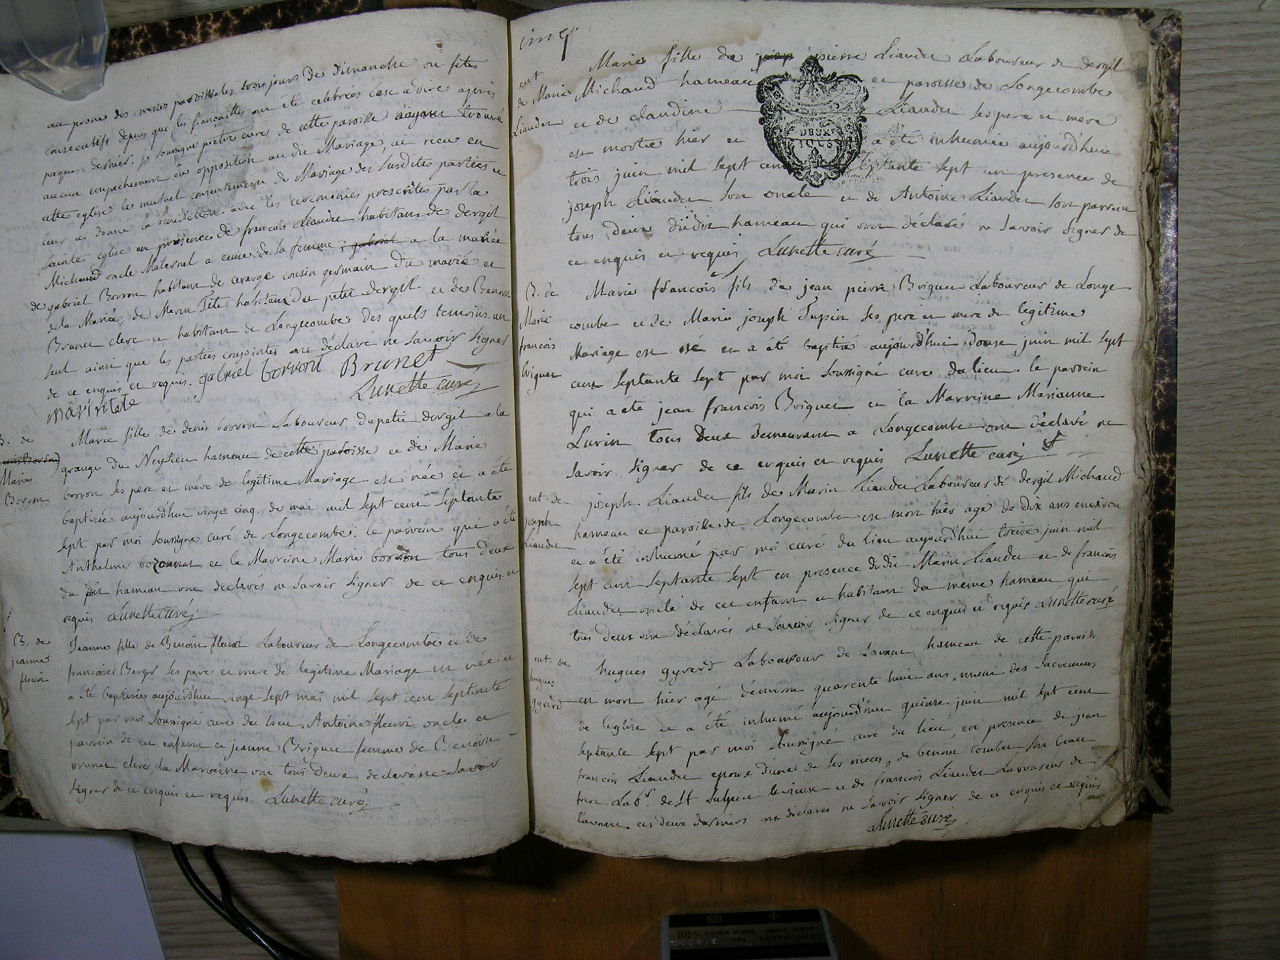 au prone des messes paroissiales trois jours de dimanche ou fetes
consecutifs depuis que les fiançailles ont été celebrées cest a dire après
paques dernier, je soussigné pretre curé de cette paroisse n'ayant trouvé
aucun empechement ou opposition au dit Mariage, ai recu en
cette eglise les mutuel consentement de Mariage des susdites parties et
leur ai donné la benediction avec les ceremonies prescrites par la
sainte eglise en presence de francois Liaudet habitant de dergit
Michaud oncle Maternel a cause de la femme, a la mariée
de gabriel Borron habitant de cousin germain du marié et
de la Mariée, de Marin Tete habitant du petit dergit et de Benoit
Brunet clerc et habitant de Longecombe des quels temoins un
seul ainsi que les parties conjointes ont déclaré ne savoir signer
de ce enquis et requis. gabriel borron Brunet
marin tete Lunette curé
B. de
Marie
Borron
Marie fille de denis borron Laboureur du petit dergit a la
grange du Neytieu hameau de cette paroisse et de Marie
borron ses pere et mere de legitime Mariage est née et a été
baptisée aujourdhui vingt cinq de mai mil sept cent septante
sept par moi soussigné curé de Longecombe. le parrain qui a été
Anthelme et la Marreine Marie borron tous deux
du dit hameau ont declarés ne savoir signer de ce enquis et
requis Lunette curé
B. de
jeanne
fleuri
Jeanne fille de Benoit fleuri Laboureur de Longecombe et de
francoise Berger ses pere et mere de legitime Mariage est née et
a été baptisée aujourdhui vingt sept mai mil sept cent septante
sept par moi soussigné curé du lieu. Antoine fleuri oncle et
parrein de cet enfant et jeanne Briguet femme de Benoit
brunet clerc, la Marreine ont tous deux declarés ne savoir
signer de ce enquis et requis Lunette curé
cinq
ent
de Marie
Liaudet
Marie fille de pierre Liaudet Laboureur de dergit
Michaud hameau et paroisse de Longecombe
et de claudine Liaudet ses pere et mere
DEUX
SOLS
est morte hier et a été inhumée aujourdhui
trois juin mil sept cent septante sept en presence de
joseph Liaudet son oncle et de Antoine Liaudet son parrein
tous deux dudit hameau qui ont déclaré ne savoir signer de
ce enquis et requis Lunette curé
B. de
Marie
francois
briguet
Marie francois fils de jean pierre Briguet Laboureur de Longe
combe et de Marie joseph Tupin ses pere et mere de legitime
Mariage est né et a été baptisé aujourdhui douze juin mil sept
cent septante sept par moi soussigné curé du lieu. le parrein
qui a été jean francois Briguet et la Marreine Marianne
Lurin tous deux demeurant a Longecombe ont déclaré ne
savoir signer de ce enquis et requis Lunette curé
ent de
joseph
Liaudet
joseph Liaudet fils de Marin Liaudet Laboureur de dergit Michaud
hameau et paroisse de Longecombe est mort hier agé de dix ans environ
et a été inhumé par moi curé du lieu aujourdhui treize juin mil
sept cent septante sept en presence du dit Marin Liaudet et de francois
Liaudet oncle de cet enfant et habitant du meme hameau qui
tous deux ont déclarés ne savoir signer de ce enquis et requis Lunette curé
ent de
hugues
gyverd
hugues gyverd Laboureur de hameau de cette paroisse
est mort hier agé d'environ quarente huit ans, muni des sacremens
de l'eglise et a été inhumé aujourdhui quinze juin mil sept cent
septante sept par moi soussigné curé du lieu, en presence de jean
francois Liaudet epoux d'une de ses nieces, de benoit combet son beau
frere Labr de St Sulpice le vieux et de francois Liaudet Laboureur de
ces deux derniers ont déclarés ne savoir signer de ce enquis et requis
Lunette curé